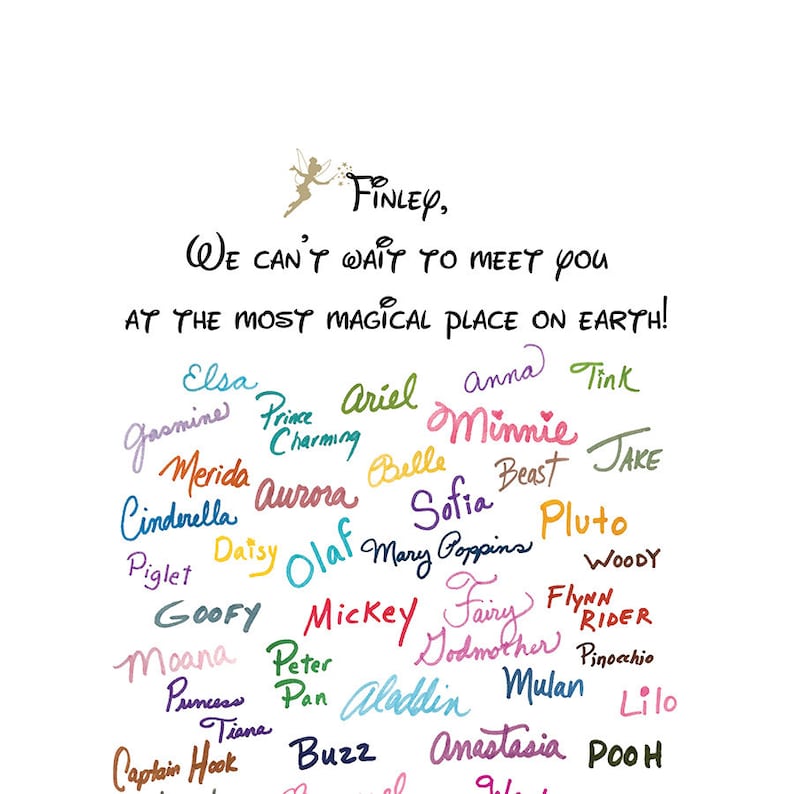 Finley,
We can't wait to meet you
at the most magical place on earth!
Elsa Ariel Anna Tink
Jasmine Prince Charming Minnie JAKE
Merida Aurora Belle Beast
Cinderella Sofia Pluto
Piglet Daisy Olaf Mary Poppins WOODY
GOOFY MICKEY Fairy Godmother FLYNN RIDER
Moana Peter Pan Pinocchio
Princess Tiana Aladdin Mulan Lilo
Captain Hook Buzz Anastasia POOH